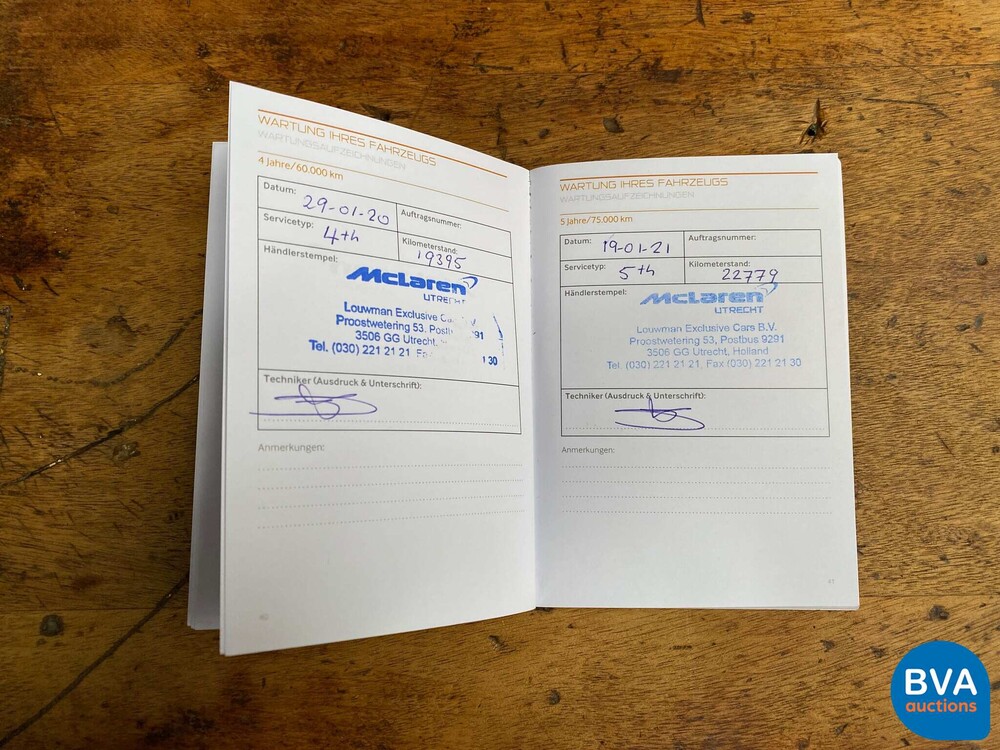 WARTUNG IHRES FAHRZEUGS
WARTUNGSAUFZEICHNUNGEN
4 Jahre/60.000 km
Datum: 29-01-20 Auftragsnummer:
Servicetyp: 4th Kilometerstand: 19395
Händlerstempel:
McLaren
UTRECHT
Louwman Exclusive V.
Proostwetering 53, 9291
3506 GG Utrecht,
Tel. (030) 221 21 21 1 30
Techniker (Ausdruck & Unterschrift):
Anmerkungen:
WARTUNG IHRES FAHRZEUGS
WARTUNGSAUFZEICHNUNGEN
5 Jahre/75.000 km
Datum: 19-01-21 Auftragsnummer:
Servicetyp: 5th Kilometerstand: 22779
Händlerstempel:
McLaren
UTRECHT
Louwman Exclusive Cars B.V.
Proostwetering 53, Postbus 9291
3506 GG Utrecht, Holland
Tel. (030) 221 21 21, Fax (030) 221 21 30
Techniker (Ausdruck & Unterschrift):
Anmerkungen:
BVA
auctions